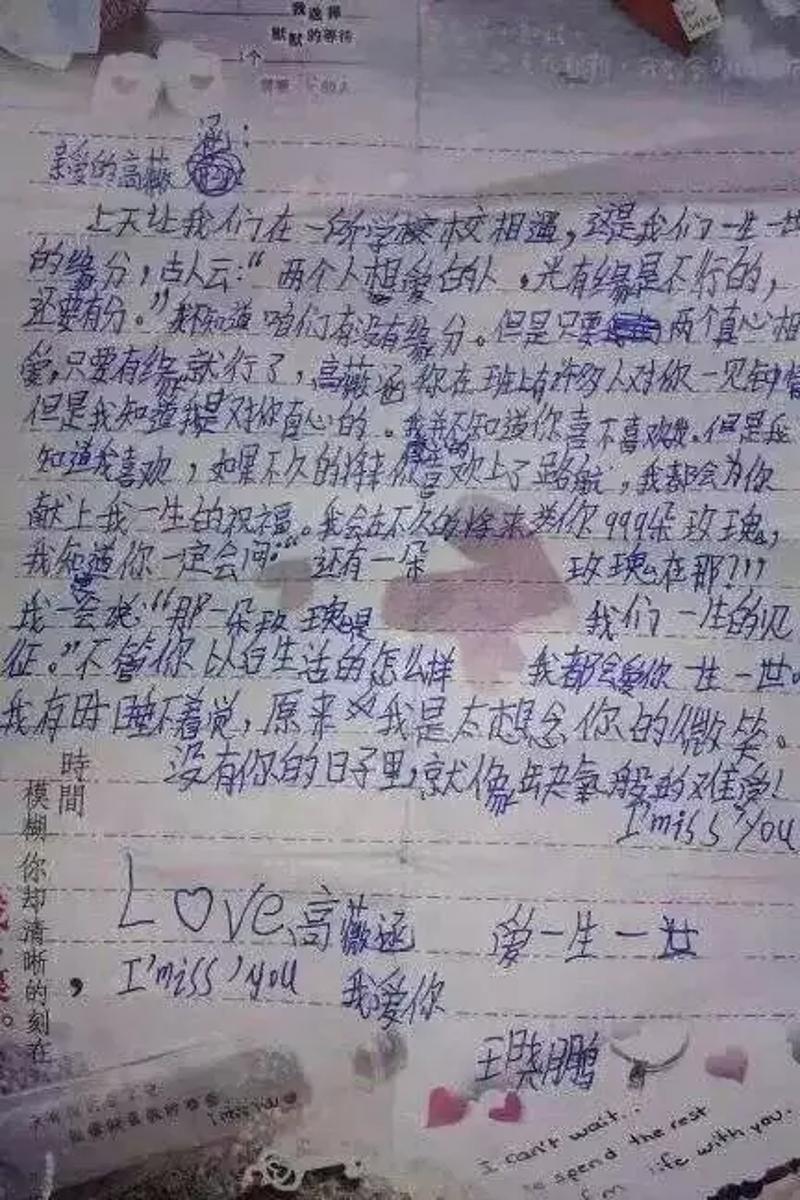 我选择
默默的等待
1个
亲爱的高薇涵:
上天让我们在一所学校校相遇,这是我们一生一世
的缘分,古人云:“两个人相爱的人,光有缘是不行的,
还要有分。”我不知道咱们有没有缘分。但是只要两个真心相
爱,只要有缘就行了,高薇涵你在班上有许多人对你一见钟情
但是我知道我是对你真心的。我并不知道你喜不喜欢我。但是我
知道我喜欢,如果不久的将来你喜欢上了路航,我都会为你
献上我一生的祝福。我会在不久的将来送你999朵玫瑰,
我知道你一定会问:“还有一朵 玫瑰在那???
我会说:“那一朵玫瑰是 我们一生的见
征。”不管你以后生活的怎么样 我都会爱你一世一世。
我有时睡不着觉,原来我是太想念你的微笑。
没有你的日子里,就像缺氧般的难受!
I'miss'you
時間
模糊你却清晰的刻在
,
Love高薇涵 爱一生一世
I'miss'you 我爱你
王晓鹏
I can't wait...
to spend the rest
life with you.